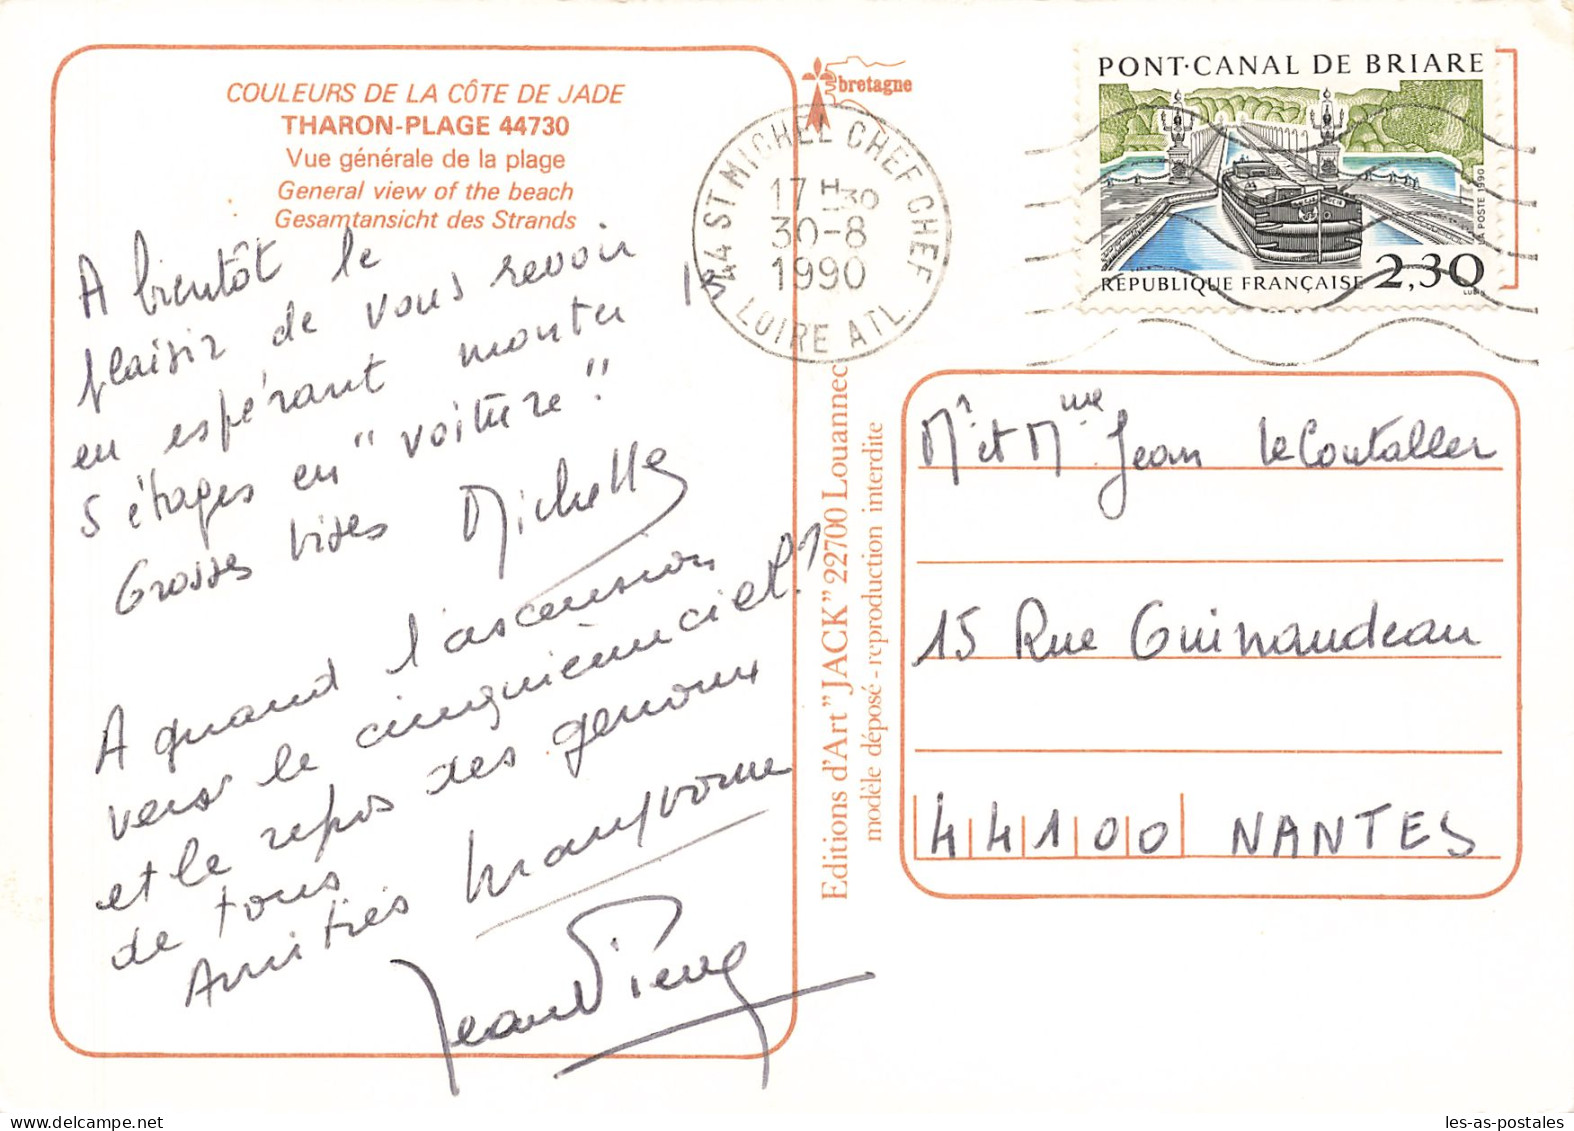 COULEURS DE LA CÔTE DE JADE
THARON-PLAGE 44730
Vue générale de la plage
General view of the beach
Gesamtansicht des Strands
A bientôt le
plaisir de vous revoir
en espérant monter
5 étages en "voiture".
Grosses bises Michelle
A quand l'ascension
vers le cinquième ciel?
et le repos des genoux
de tous
Amitiés
Jean Pierre
bretagne
44 ST MICHEL CHEF CHEF
17H30
30-8
1990
LOIRE ATL.
Editions d'Art "JACK" 22700 Louannec
modèle déposé - reproduction interdite
PONT-CANAL DE BRIARE
LA POSTE 1990
RÉPUBLIQUE FRANÇAISE 2,30
Mr et Mme Jean Le Coutaller
15 Rue Guinaudeau
44100 NANTES
les-as-postales